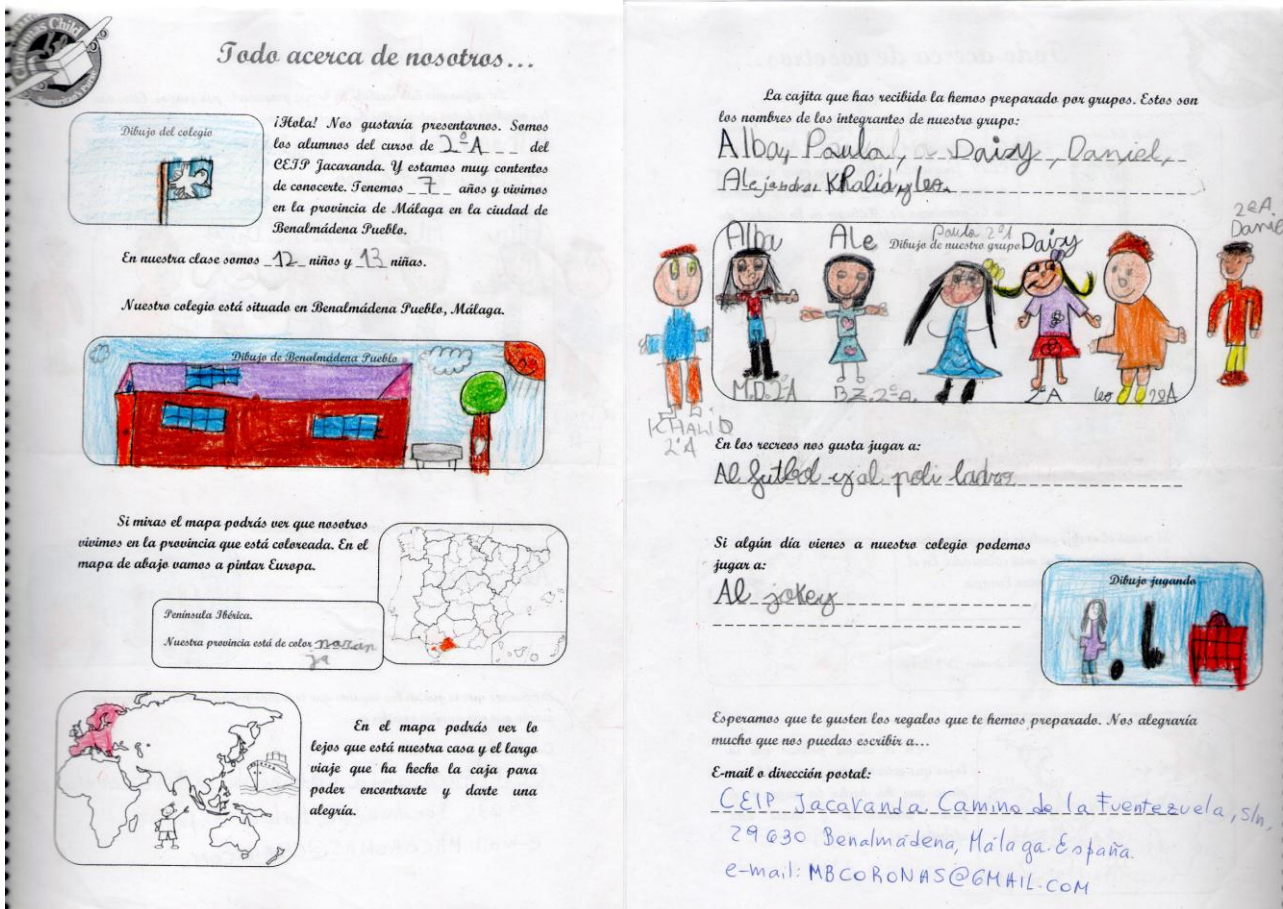 Christmas Child
Todo acerca de nosotros...
Dibujo del colegio
¡Hola! Nos gustaría presentarnos. Somos
los alumnos del curso de 2ºA del
CEIP Jacaranda. Y estamos muy contentos
de conocerte. Tenemos 7 años y vivimos
en la provincia de Málaga en la ciudad de
Benalmádena Pueblo.
En nuestra clase somos 12 niños y 13 niñas.
Nuestro colegio está situado en Benalmádena Pueblo, Málaga.
Dibujo de Benalmádena Pueblo
Si miras el mapa podrás ver que nosotros
vivimos en la provincia que está coloreada. En el
mapa de abajo vamos a pintar Europa.
Península Ibérica.
Nuestra provincia está de color naran
ja
En el mapa podrás ver lo
lejos que está nuestra casa y el largo
viaje que ha hecho la caja para
poder encontrarte y darte una
alegría.
La cajita que has recibido la hemos preparado por grupos. Estos son
los nombres de los integrantes de nuestro grupo:
Alba, Paula, Daizy, Daniel,
Alejandra, Khalid y leo.
2ºA.
Daniel
Alba Ale Paula 2ºA Daizy
Dibujo de nuestro grupo
M.D. 2ºA BZ. 2º A. 2A leo 2ºA
KHALID
2ºA
En los recreos nos gusta jugar a:
Al futbol y al poli ladron
Si algún día vienes a nuestro colegio podemos
jugar a:
Al jokey
Dibujo jugando
Esperamos que te gusten los regalos que te hemos preparado. Nos alegraría
mucho que nos puedas escribir a...
E-mail o dirección postal:
CEIP Jacaranda. Camino de la Fuentezuela, s/n.
29630 Benalmádena, Málaga. España.
e-mail: MBCORONAS@GMAIL.COM